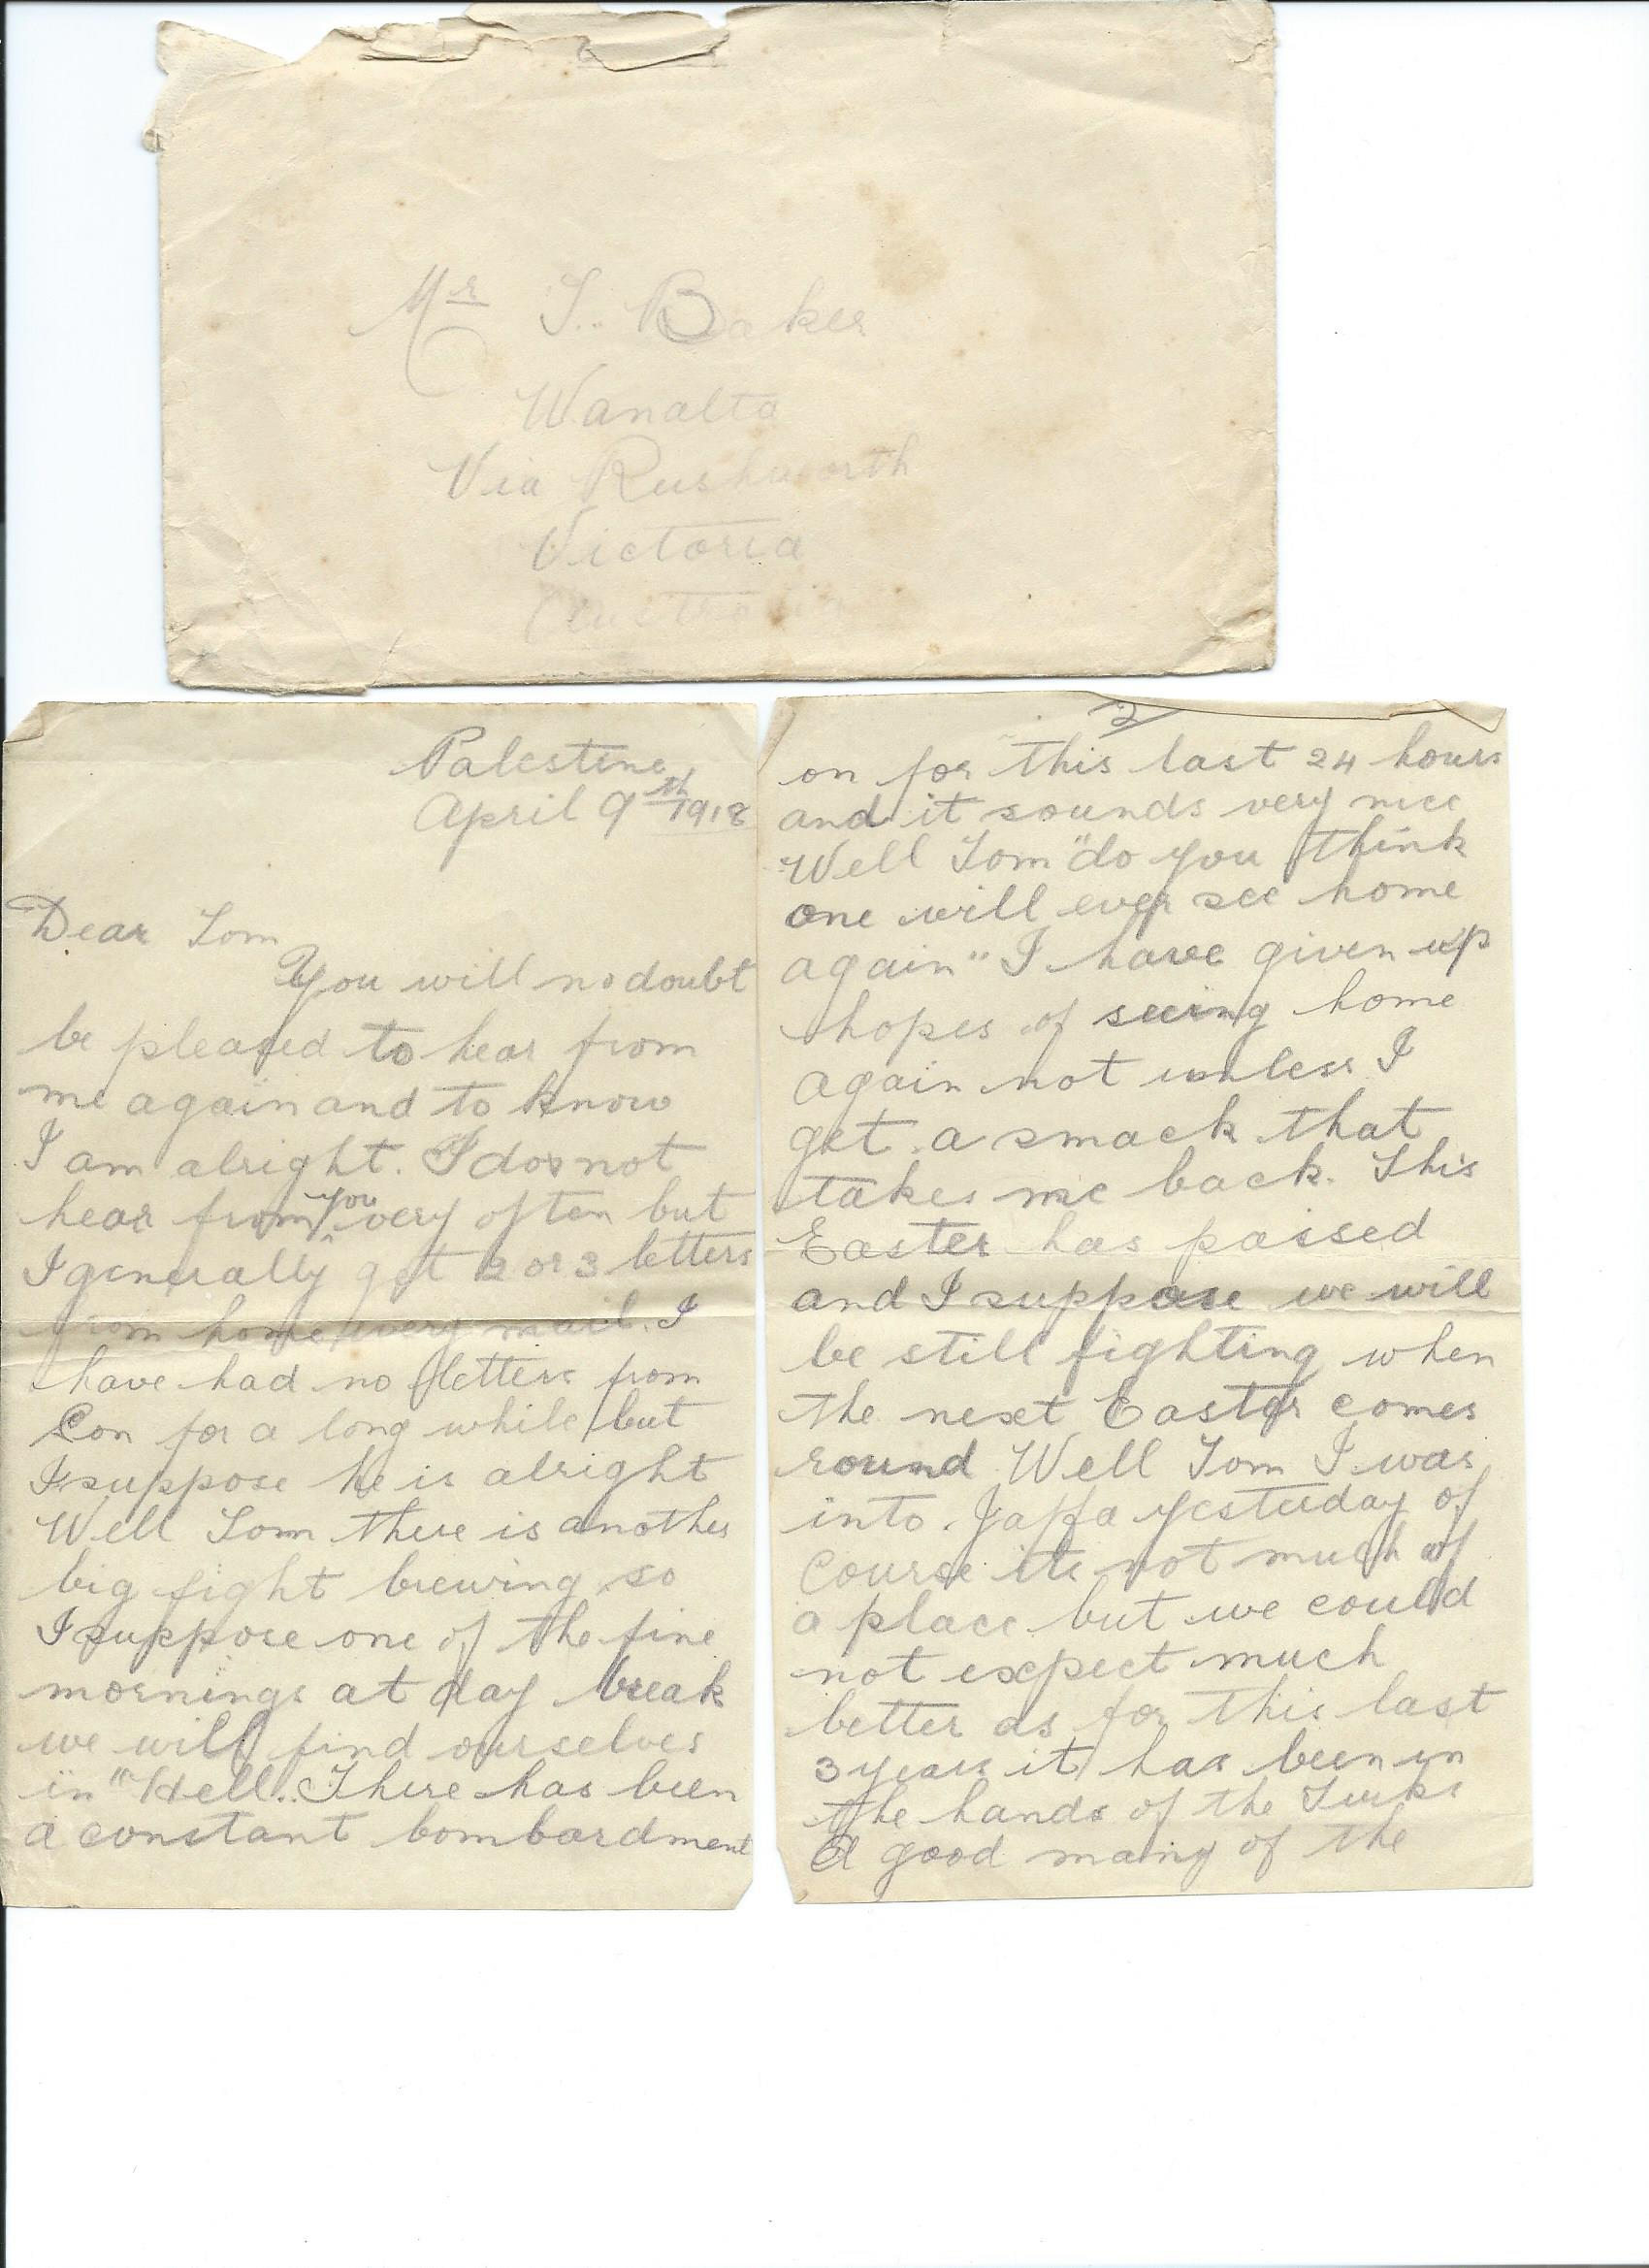 Mr T. Baker
Wanalta
Via Rushworth
Victoria
Australia
Palestine
April 9th 1918
Dear Tom
You will no doubt
be pleased to hear from
me again and to know
I am alright. I do not
hear from you very often but
I generally get 2 or 3 letters
from home every mail. I
have had no letters from
Con for a long while but
I suppose he is alright
Well Tom there is another
big fight brewing so
I suppose one of the fine
mornings at day break
we will find ourselves
in "Hell". There has been
a constant bombardment
2
on for this last 24 hours
and it sounds very nice
Well Tom "do you think
one will ever see home
again" I have given up
hopes of seeing home
again not unless I
get a smack that
takes me back. This
Easter has passed
and I suppose we will
be still fighting when
the next Easter comes
round Well Tom I was
into Jaffa yesterday of
course its not much of
a place but we could
not expect much
better as for this last
3 years it has been in
the hands of the Turks
A good many of the